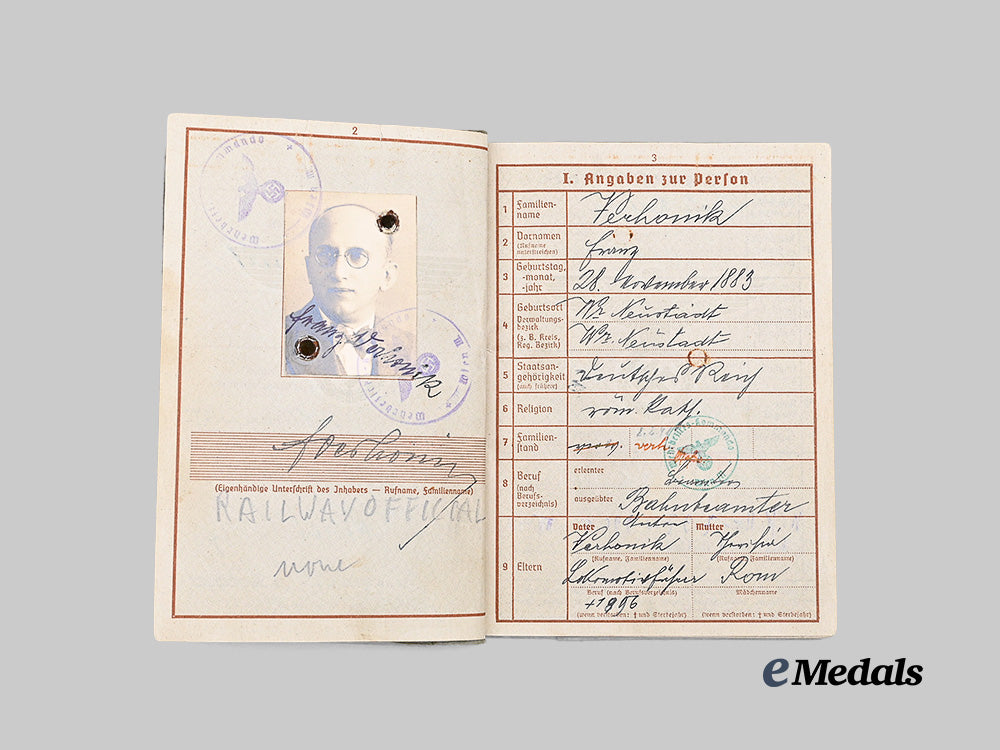 2
Franz Verhonik
(Eigenhändige Unterschrift des Inhabers — Rufname, Familienname)
RAILWAY OFFICIAL
none
3
I. Angaben zur Person
1 Familien-
name
Verhonik
2 Vornamen
(Rufname
unterstreichen)
Franz
3 Geburtstag,
-monat,
-jahr
28. November 1883
4 Geburtsort
Verwaltungs-
bezirk
(z. B. Kreis,
Reg. Bezirk)
Wr. Neustadt
Wr. Neustadt
5 Staatsan-
gehörigkeit
(auch frühere)
Deutsches Reich
6 Religion
röm. kath.
7 Familien-
stand
verh.
8 Beruf
(nach
Berufs-
verzeichnis)
erlernter
ausgeübter
Bahnbeamter
9 Eltern
Vater
Mutter
Anton
Verhonik
(Rufname, Familienname)
(Rufname, Familienname)
Lokomotivführer
Rom
Beruf (nach Berufsverzeichnis)
Mädchenname
(wenn verstorben: † und Sterbejahr)
(wenn verstorben: † und Sterbejahr)
eMedals